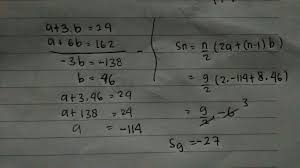 a+3.b = 24
a+6b = 162
-3b = -138
b = 46
a+3.46 = 24
a+138 = 24
a = -114
Sn = n/2 (2a+(n-1)b)
= 9/2 (2.-114+8.46)
= 9/2 . -6 3
S9 = -27